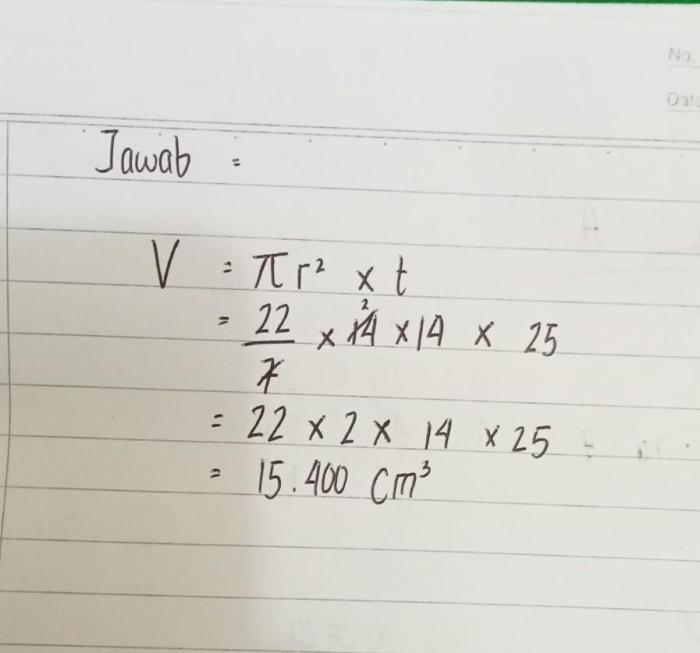 No.
Date
Jawab =
V = πr² x t
= 22/7 x 14 2 x 14 x 25
= 22 x 2 x 14 x 25
= 15.400 cm³